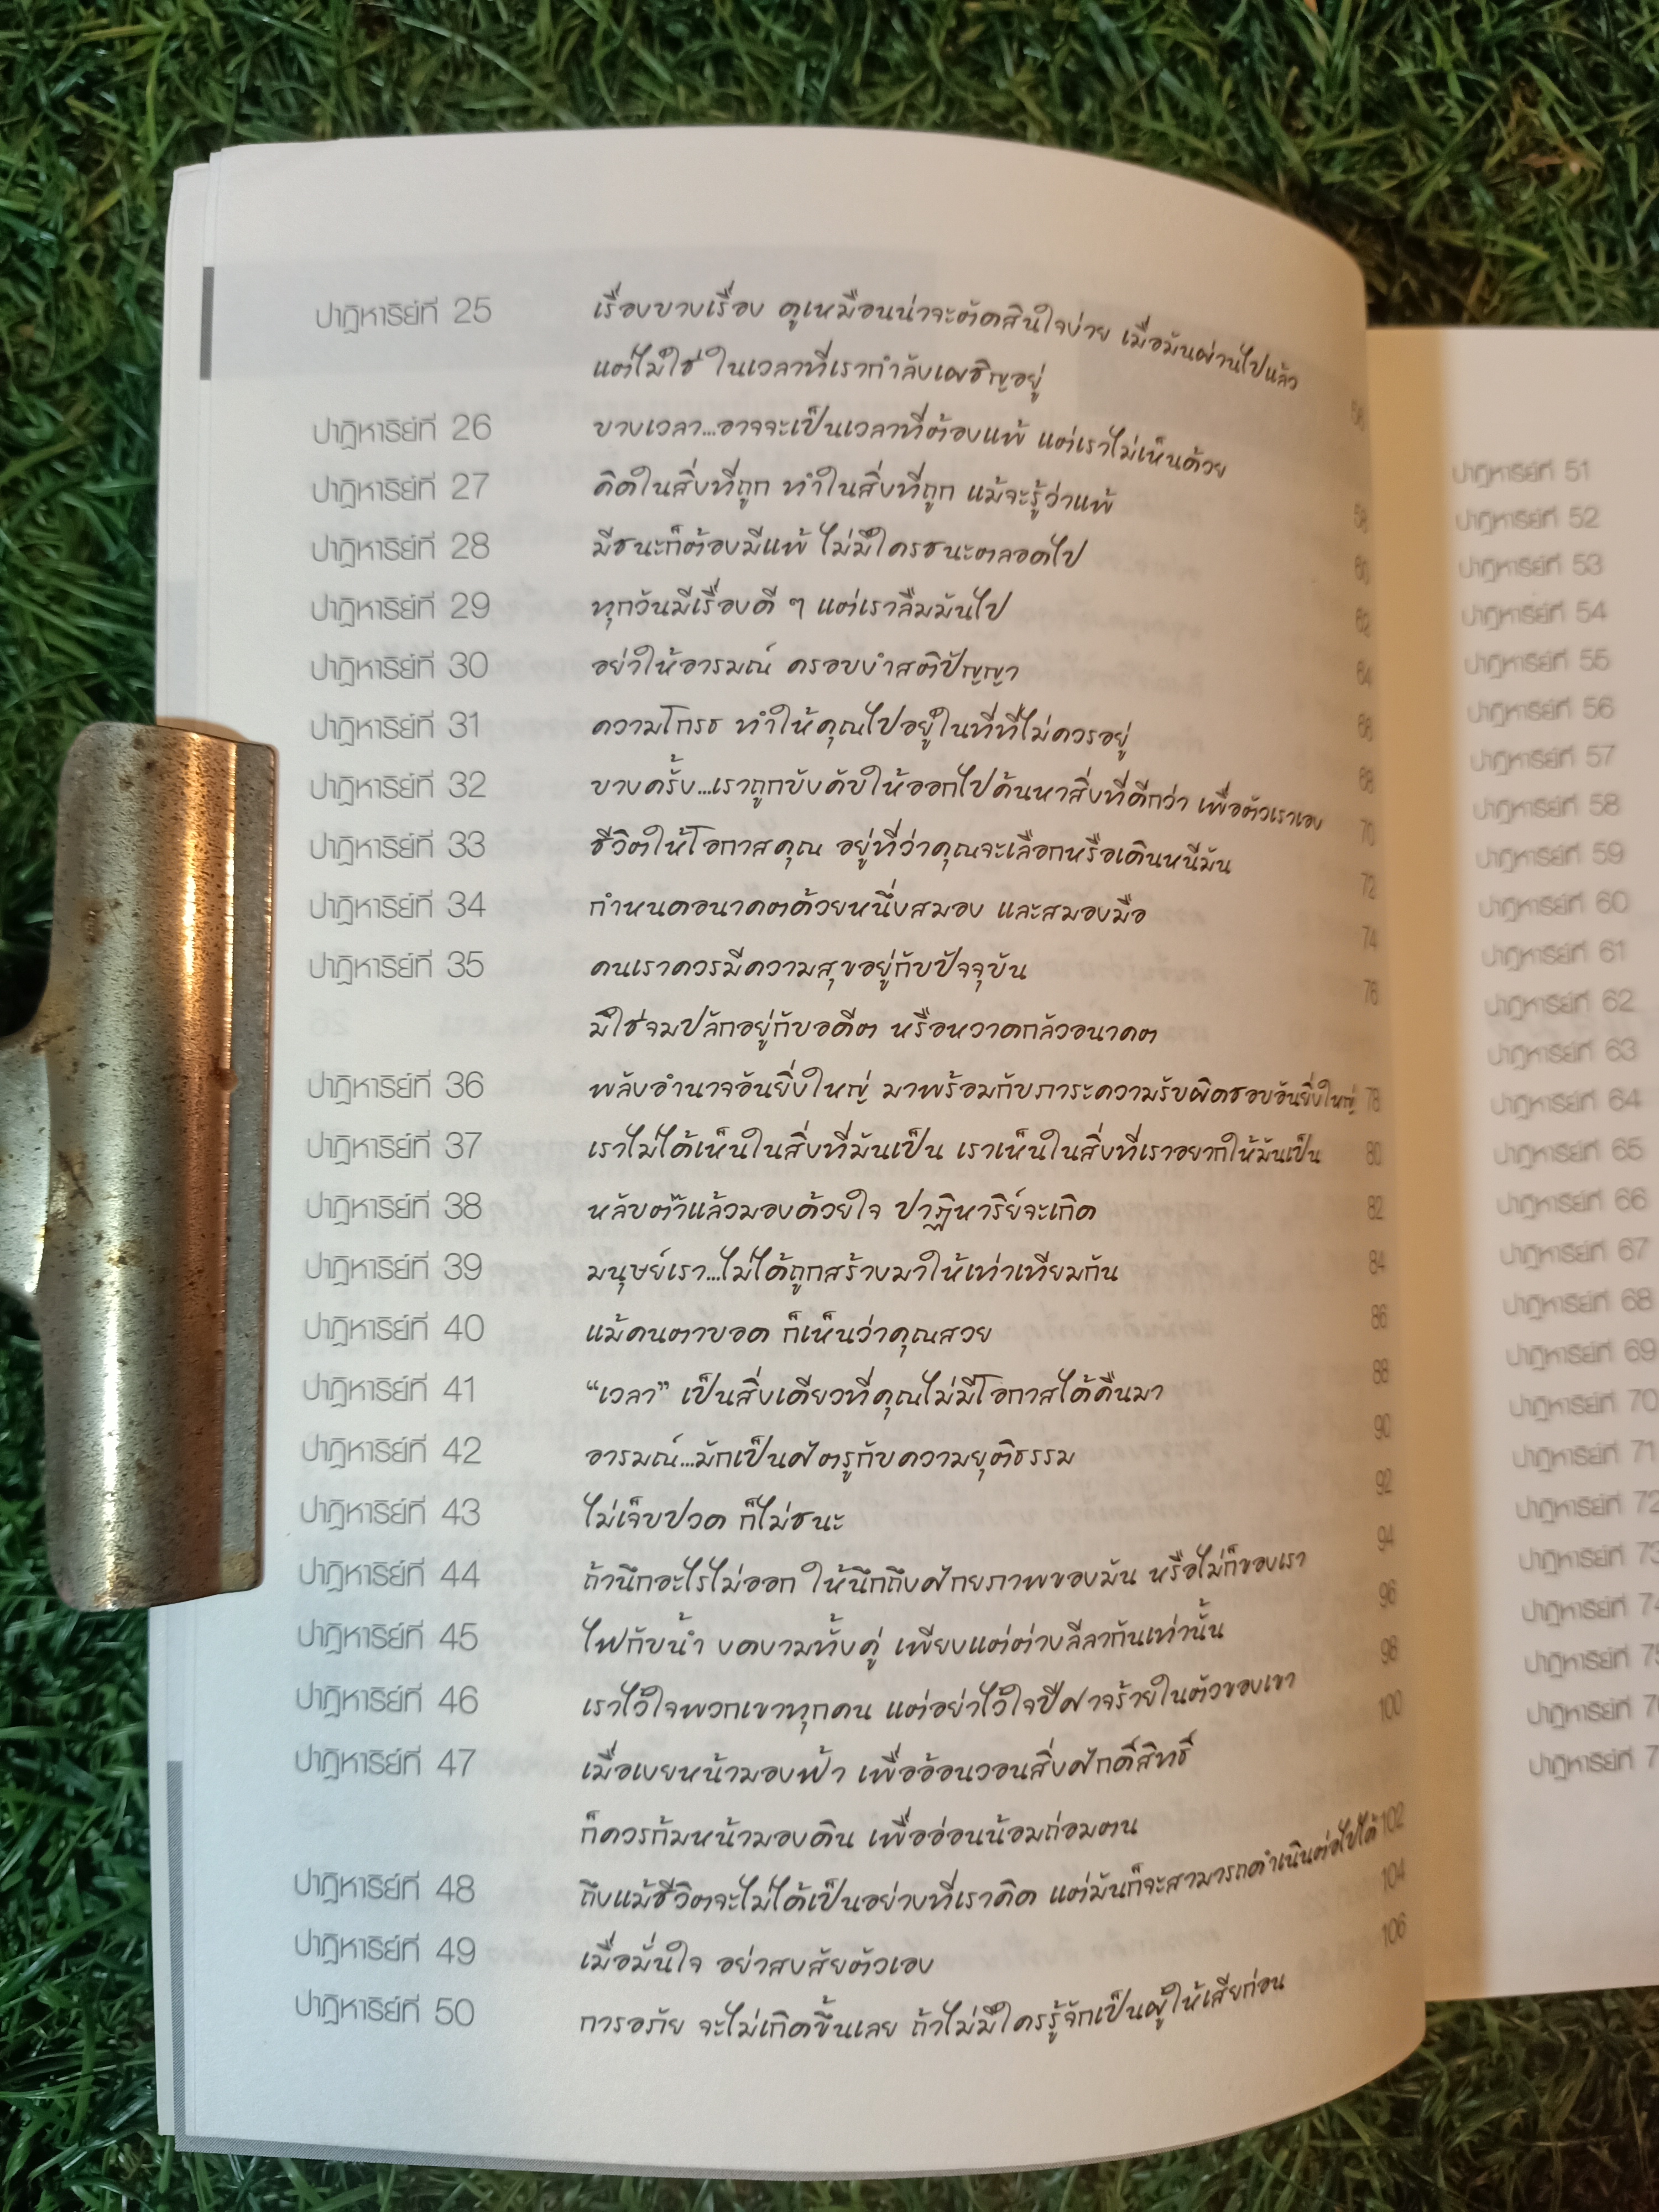 ปาฏิหาริย์ที่ 25 เรื่องบางเรื่อง ดูเหมือนน่าจะตัดสินใจง่าย เมื่อมันผ่านไปแล้ว
แต่ไม่ใช่ ในเวลาที่เรากำลังเผชิญอยู่ 56
ปาฏิหาริย์ที่ 26 บางเวลา...อาจจะเป็นเวลาที่ต้องแพ้ แต่เราไม่เห็นด้วย 58
ปาฏิหาริย์ที่ 27 คิดในสิ่งที่ถูก ทำในสิ่งที่ถูก แม้จะรู้ว่าแพ้ 60
ปาฏิหาริย์ที่ 28 มีชนะก็ต้องมีแพ้ ไม่มีใครชนะตลอดไป 62
ปาฏิหาริย์ที่ 29 ทุกวันมีเรื่องดี ๆ แต่เราลืมมันไป 64
ปาฏิหาริย์ที่ 30 อย่าให้อารมณ์ ครอบงำสติปัญญา 66
ปาฏิหาริย์ที่ 31 ความโกรธ ทำให้คุณไปอยู่ในที่ที่ไม่ควรอยู่ 68
ปาฏิหาริย์ที่ 32 บางครั้ง...เราถูกบังคับให้ออกไปค้นหาสิ่งที่ดีกว่า เพื่อตัวเราเอง 70
ปาฏิหาริย์ที่ 33 ชีวิตให้โอกาสคุณ อยู่ที่ว่าคุณจะเลือกหรือเดินหนีมัน 72
ปาฏิหาริย์ที่ 34 กำหนดอนาคตด้วยหนึ่งสมอง และสมองมือ 74
ปาฏิหาริย์ที่ 35 คนเราควรมีความสุขอยู่กับปัจจุบัน
มิใช่จมปลักอยู่กับอดีต หรือหวาดกลัวอนาคต 76
ปาฏิหาริย์ที่ 36 พลังอำนาจอันยิ่งใหญ่ มาพร้อมกับภาระความรับผิดชอบอันยิ่งใหญ่ 78
ปาฏิหาริย์ที่ 37 เราไม่ได้เห็นในสิ่งที่มันเป็น เราเห็นในสิ่งที่เราอยากให้มันเป็น 80
ปาฏิหาริย์ที่ 38 หลับตาแล้วมองด้วยใจ ปาฏิหาริย์จะเกิด 82
ปาฏิหาริย์ที่ 39 มนุษย์เรา...ไม่ได้ถูกสร้างมาให้เท่าเทียมกัน 84
ปาฏิหาริย์ที่ 40 แม้คนตาบอด ก็เห็นว่าคุณสวย 86
ปาฏิหาริย์ที่ 41 “เวลา” เป็นสิ่งเดียวที่คุณไม่มีโอกาสได้คืนมา 88
ปาฏิหาริย์ที่ 42 อารมณ์...มักเป็นศัตรูกับความยุติธรรม 90
ปาฏิหาริย์ที่ 43 ไม่เจ็บปวด ก็ไม่ชนะ 92
ปาฏิหาริย์ที่ 44 ถ้านึกอะไรไม่ออก ให้นึกถึงศักยภาพของมัน หรือไม่ก็ของเรา 94
ปาฏิหาริย์ที่ 45 ไฟกับน้ำ งดงามทั้งคู่ เพียงแต่ต่างลีลากันเท่านั้น 96
ปาฏิหาริย์ที่ 46 เราไว้ใจพวกเขาทุกคน แต่อย่าไว้ใจปีศาจร้ายในตัวของเขา 98
ปาฏิหาริย์ที่ 47 เมื่อเงยหน้ามองฟ้า เพื่ออ้อนวอนสิ่งศักดิ์สิทธิ์ 100
ก็ควรก้มหน้ามองดิน เพื่ออ่อนน้อมถ่อมตน
ปาฏิหาริย์ที่ 48 ถึงแม้ชีวิตจะไม่ได้เป็นอย่างที่เราคิด แต่มันก็จะสามารถดำเนินต่อไปได้ 102
ปาฏิหาริย์ที่ 49 เมื่อมั่นใจ อย่าสงสัยตัวเอง 104
ปาฏิหาริย์ที่ 50 การอภัย จะไม่เกิดขึ้นเลย ถ้าไม่มีใครรู้จักเป็นผู้ให้เสียก่อน 106
ปาฏิหาริย์ที่ 51
ปาฏิหาริย์ที่ 52
ปาฏิหาริย์ที่ 53
ปาฏิหาริย์ที่ 54
ปาฏิหาริย์ที่ 55
ปาฏิหาริย์ที่ 56
ปาฏิหาริย์ที่ 57
ปาฏิหาริย์ที่ 58
ปาฏิหาริย์ที่ 59
ปาฏิหาริย์ที่ 60
ปาฏิหาริย์ที่ 61
ปาฏิหาริย์ที่ 62
ปาฏิหาริย์ที่ 63
ปาฏิหาริย์ที่ 64
ปาฏิหาริย์ที่ 65
ปาฏิหาริย์ที่ 66
ปาฏิหาริย์ที่ 67
ปาฏิหาริย์ที่ 68
ปาฏิหาริย์ที่ 69
ปาฏิหาริย์ที่ 70
ปาฏิหาริย์ที่ 71
ปาฏิหาริย์ที่ 72
ปาฏิหาริย์ที่ 73
ปาฏิหาริย์ที่ 74
ปาฏิหาริย์ที่ 75
ปาฏิหาริย์ที่ 7
ปาฏิหาริย์ที่ 7